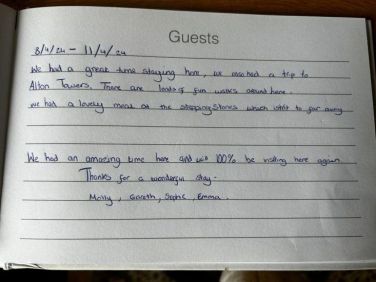 Guests
8/4/24 - 11/4/24
We had a great time staying here, we also had a trip to
Alton Towers. There are loads of fun walks around here.
we had a lovely meal at the stepping stones which isnt to far away
We had an amazing time here and will 100% be visiting here again.
Thanks for a wonderful stay.
Molly, Gareth, Sophie, Emma.